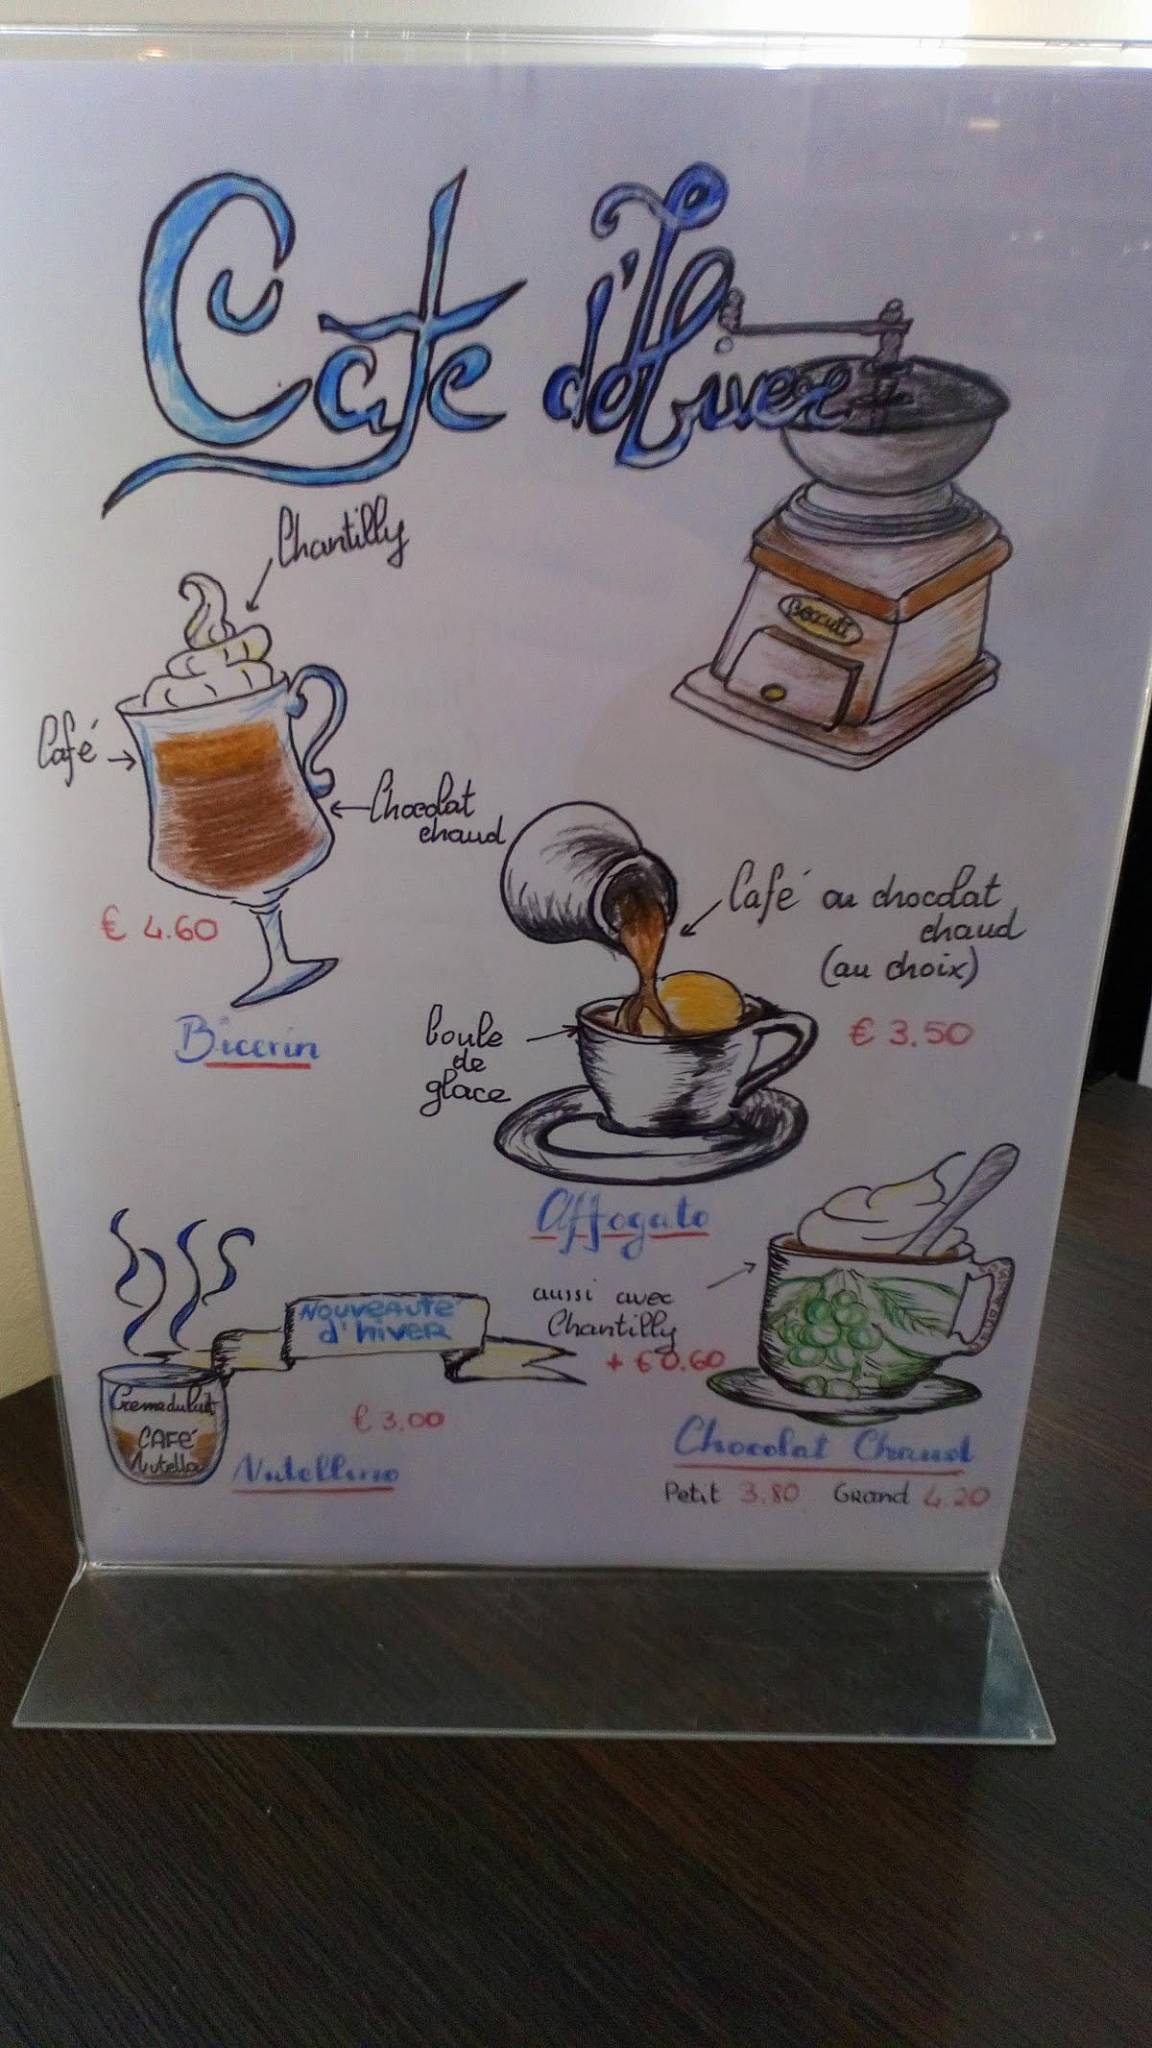 Café d'Hiver
Chantilly
Café
Chocolat
chaud
€ 4.60
Bicerin
Café ou chocolat
chaud
(au choix)
boule
de
glace
€ 3.50
Affogato
Nouveauté
d'hiver
aussi avec
Chantilly
+ €0.60
CAFÉ
Nutella
€ 3,00
Nutellino
Chocolat Chaud
Petit 3,80 Grand 4,20